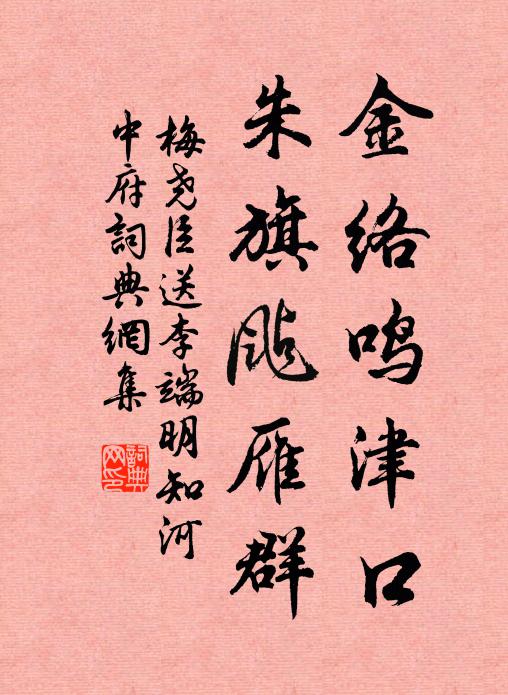 金络鸣津口
朱旗飐雁群
梅尧臣送李端明知河
中府詞典網集
詞典
网印